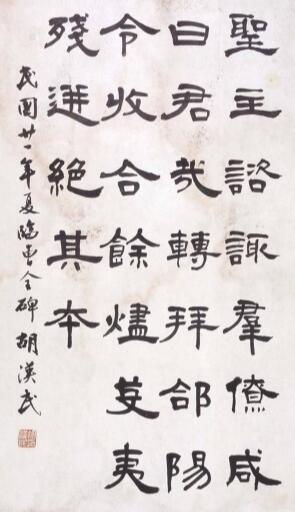 聖主諮諏羣僚咸
曰君哉轉拜郃陽
令收合餘燼芟夷
殘迸絕其本
民國廿一年夏臨曹全碑 胡漢民